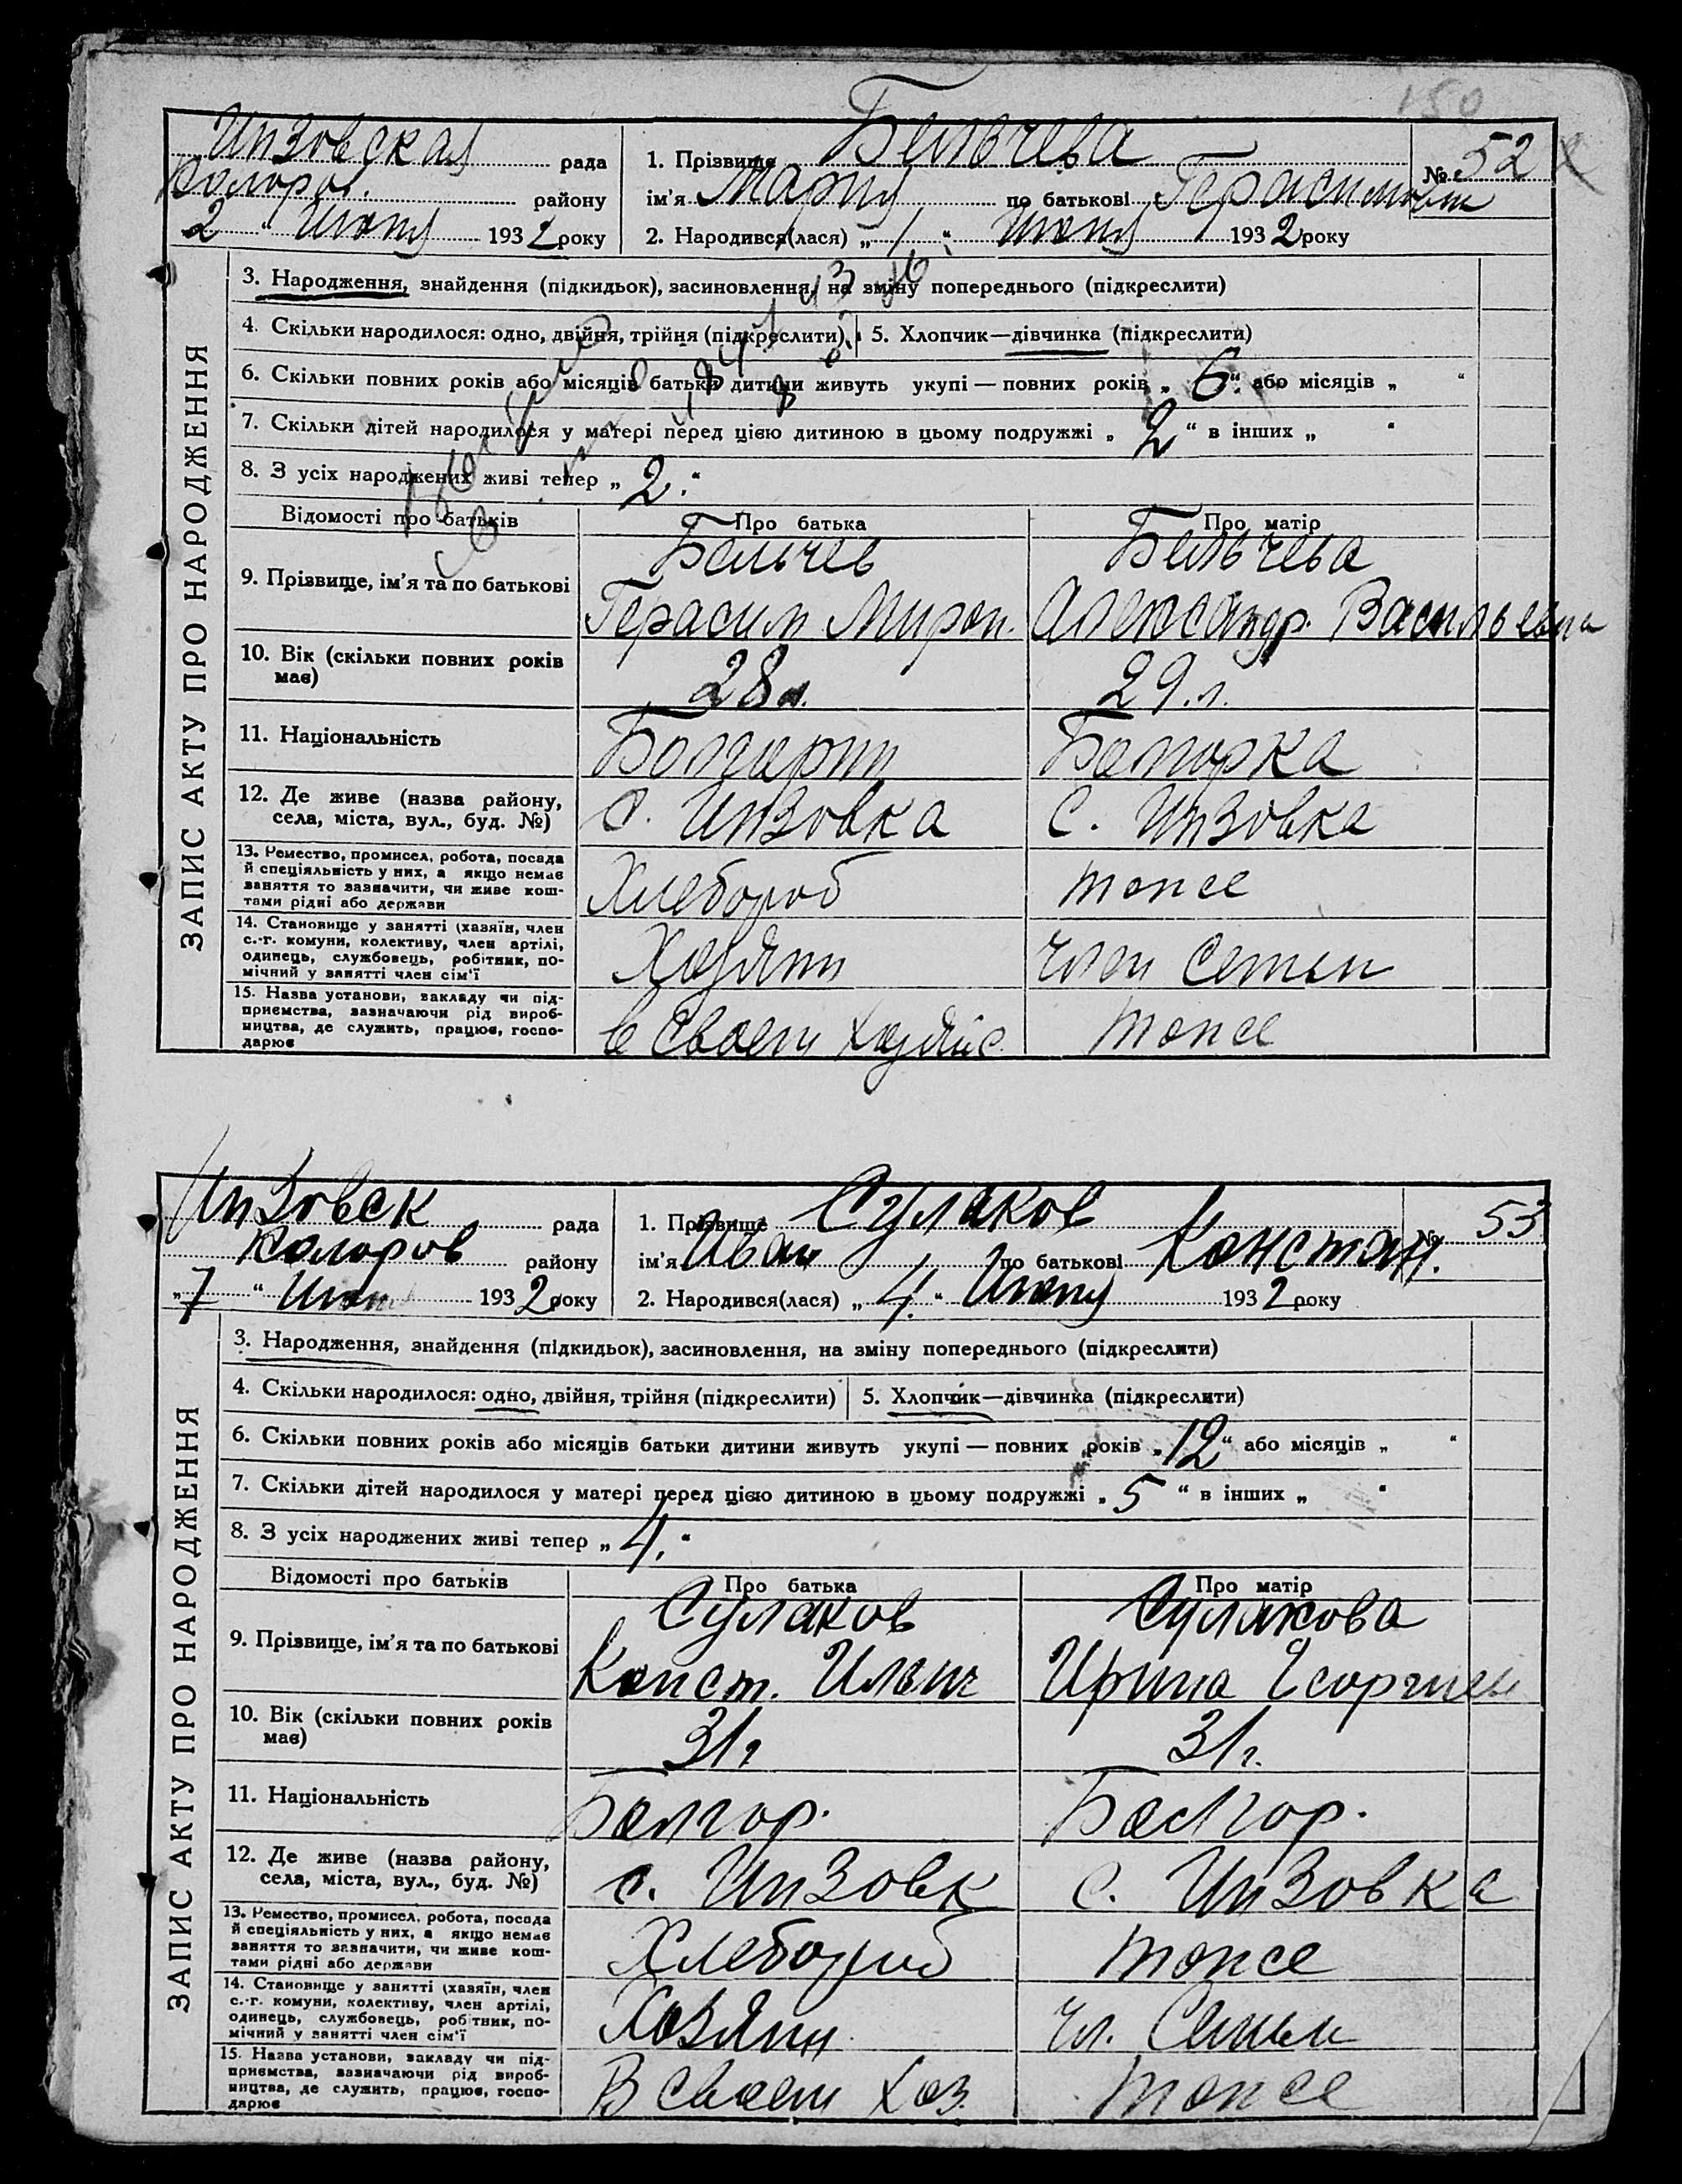 150
Инзовская рада
Коларов. району
2 " Июня 1932 року
1. Прізвище Бельчева
ім'я Мария по батькові Герасимовн
№ 52
2. Народився(лася) „ 1 " Июня 1932 року
ЗАПИС АКТУ ПРО НАРОДЖЕННЯ
3. Народження, знайдення (підкидьок), засиновлення, на зміну попереднього (підкреслити)
4. Скільки народилося: одно, двійня, трійня (підкреслити) 5. Хлопчик—дівчинка (підкреслити)
6. Скільки повних років або місяців батьки дитини живуть укупі — повних років „ 6 " або місяців „ "
7. Скільки дітей народилося у матері перед цією дитиною в цьому подружжі „ 2 " в інших „ "
8. З усіх народжених живі тепер „ 2. "
Відомості про батьків Про батька Про матір
9. Прізвище, ім'я та по батькові
Бельчев
Герасим Мирон.
Бельчева
Александр. Васильевна
10. Вік (скільки повних років має)
28 л.
29.л.
11. Національність
Болгарин
Болгарка
12. Де живе (назва району,
села, міста, вул., буд. №)
с. Инзовка
с. Инзовка
13. Ремество, промисел, робота, посада
й спеціяльність у них, а якщо немає
заняття то зазначити, чи живе кош-
тами рідні або держави
Хлебороб
тоже
14. Становище у занятті (хазяїн, член
с.-г. комуни, колективу, член артілі,
одинець, службовець, робітник, по-
мічний у занятті член сім'ї
Хозяин
член семьи
15. Назва установи, закладу чи під-
приємства, зазначаючи рід вироб-
ництва, де служить, працює, госпо-
дарює
в своем хозяйс.
тоже
Инзовск рада
Коларов району
„ 7 " Июня 1932 року
1. Прізвище Сулаков
ім'я Иван по батькові Констан.
№ 53
2. Народився(лася) „ 4. " Июня 1932 року
ЗАПИС АКТУ ПРО НАРОДЖЕННЯ
3. Народження, знайдення (підкидьок), засиновлення, на зміну попереднього (підкреслити)
4. Скільки народилося: одно, двійня, трійня (підкреслити) 5. Хлопчик—дівчинка (підкреслити)
6. Скільки повних років або місяців батьки дитини живуть укупі — повних років „ 12 " або місяців „ "
7. Скільки дітей народилося у матері перед цією дитиною в цьому подружжі „ 5 " в інших „ "
8. З усіх народжених живі тепер „ 4. "
Відомості про батьків Про батька Про матір
9. Прізвище, ім'я та по батькові
Сулаков
Конст. Ильич
Сулакова
Ирина Георгиев
10. Вік (скільки повних років має)
31 г
31 г.
11. Національність
Болгар.
Болгар.
12. Де живе (назва району,
села, міста, вул., буд. №)
с. Инзовк
с. Инзовка
13. Ремество, промисел, робота, посада
й спеціяльність у них, а якщо немає
заняття то зазначити, чи живе кош-
тами рідні або держави
Хлебороб
тоже
14. Становище у занятті (хазяїн, член
с.-г. комуни, колективу, член артілі,
одинець, службовець, робітник, по-
мічний у занятті член сім'ї
Хозяин
чл. семьи
15. Назва установи, закладу чи під-
приємства, зазначаючи рід вироб-
ництва, де служить, працює, госпо-
дарює
В своем хоз.
тоже